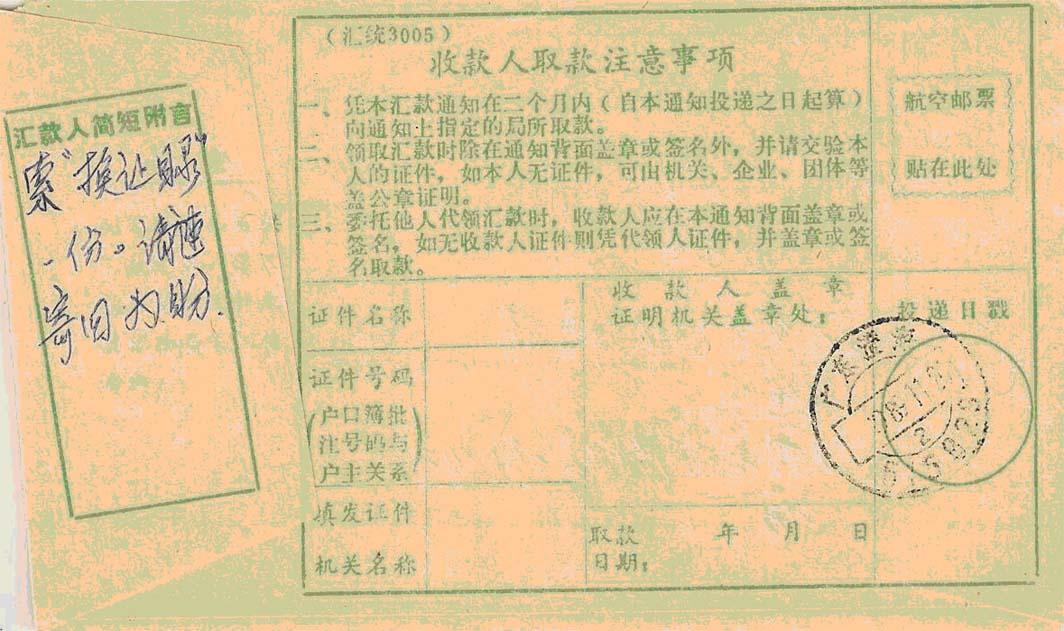 汇款人简短附言
索“换让目录”
一份。请速
寄回为盼.
(汇统3005)
收款人取款注意事项
一、凭本汇款通知在二个月内(自本通知投递之日起算)
向通知上指定的局所取款。
二、领取汇款时除在通知背面盖章或签名外,并请交验本
人的证件,如本人无证件,可由机关、企业、团体等
盖公章证明。
三、委托他人代领汇款时,收款人应在本通知背面盖章或
签名,如无收款人证件则凭代领人证件,并盖章或签
名取款。
航空邮票
贴在此处
证件名称
证件号码
(户口簿批
注号码与
户主关系)
填发证件
机关名称
收款人盖章
证明机关盖章处:
取款
日期:
年 月 日
投递日戳
广东澄海